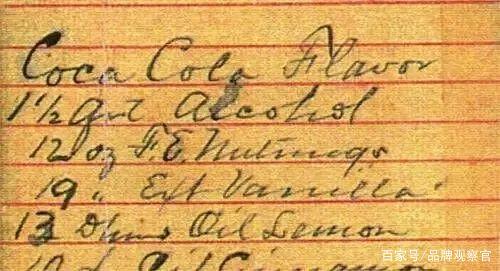 Coca Cola Flavor
1½ Alcohol
12 oz F.E. Nutmegs
19 " Ext Vanilla
Oil Lemon
Oil
百家号/品牌观察官